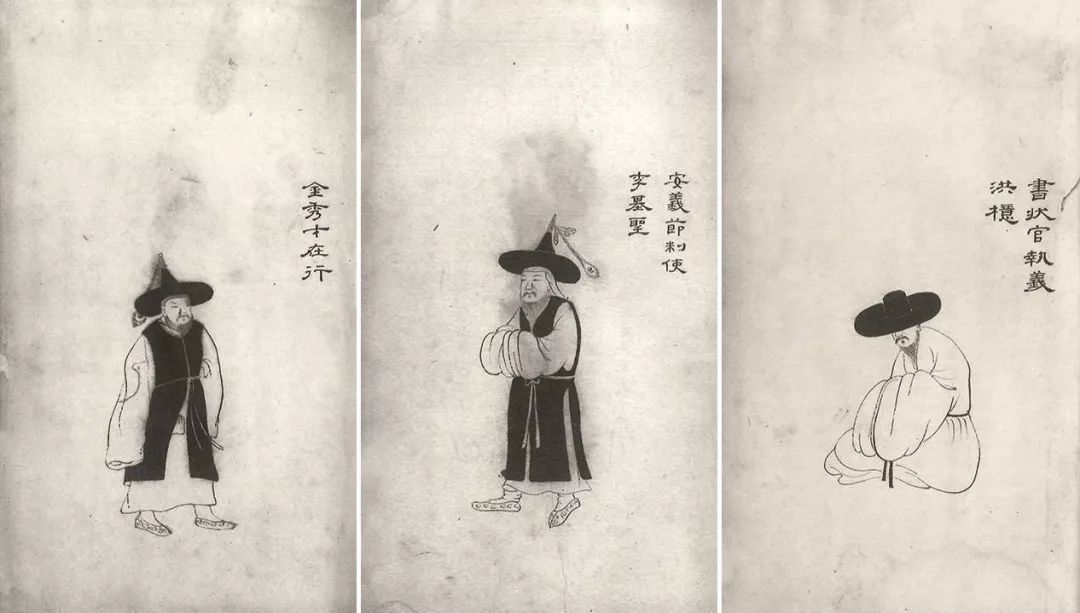 金秀才在行
安義節制使
李基聖
書狀官執義
洪檍